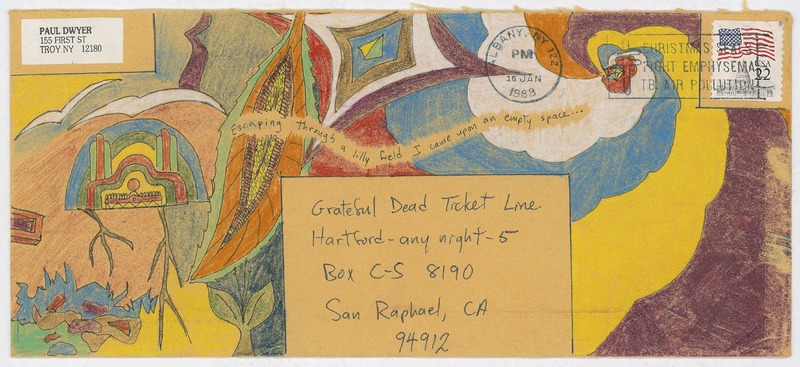 PAUL DWYER
155 FIRST ST
TROY NY 12180
ALBANY, NY 122
PM
16 JAN
1988
CHRISTMAS SEALS
FIGHT EMPHYSEMA
TB, AIR POLLUTION
USA
22
Escaping through a lilly field I came upon an empty space...
Grateful Dead Ticket Line
Hartford-any night-5
Box C-S 8190
San Raphael, CA
94912